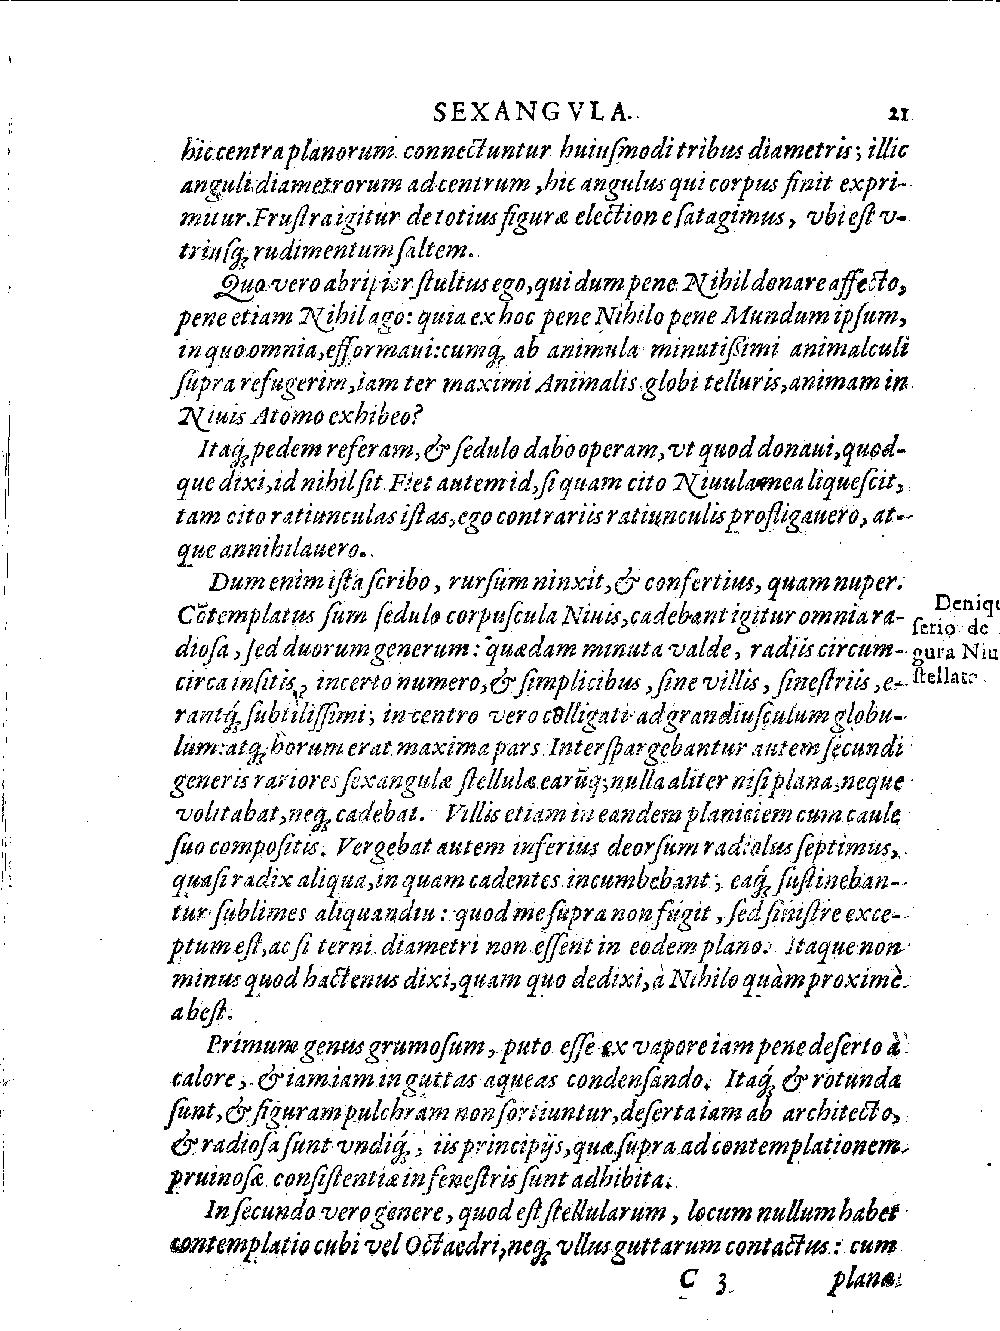 SEXANGVLA. 21
hic centra planorum connectuntur huiuſmodi tribus diametris; illic
anguli diametrorum ad centrum, hic angulus qui corpus finit expri-
mitur. Fruſtra igitur de totius figuræ electione ſatagimus, vbi eſt v-
triuſq́ꝫ rudimentum ſaltem.
Quo vero abripior ſtultus ego, qui dum pene Nihil donare affecto,
pene etiam Nihil ago: quia ex hoc pene Nihilo pene Mundum ipſum,
in quo omnia, efformaui: cumq́ꝫ ab animula minutiſſimi animalculi
ſupra refugerim, iam ter maximi Animalis globi telluris, animam in
Niuis Atomo exhibeo?
Itaq́ꝫ pedem referam, & ſedulo dabo operam, vt quod donaui, quod-
que dixi, id nihil ſit. Fiet autem id, ſi quam cito Niuula mea liqueſcit,
tam cito ratiunculas iſtas, ego contrariis ratiunculis profligauero, at-
que annihilauero.
Dum enim iſta ſcribo, rurſum ninxit, & confertius, quam nuper.
Cõtemplatus ſum ſedulo corpuſcula Niuis, cadebant igitur omnia ra-
dioſa, ſed duorum generum: quædam minuta valde, radiis circum-
circa inſitis, incerto numero, & ſimplicibus, ſine villis, ſine ſtriis, e-
rantq́ꝫ ſubtiliſſimi; in centro vero colligati ad grandiuſculum globu-
lum: atq́ꝫ horum erat maxima pars. Interſpargebantur autem ſecundi
generis rariores ſexangulæ ſtellulæ earũq; nulla aliter niſi plana, neque
volitabat, neq́ꝫ cadebat. Villis etiam in eandem planiciem cum caule
ſuo compoſitis. Vergebat autem inferius deorſum radiolus ſeptimus,
quaſi radix aliqua, in quam cadentes incumbebant; eaq́ꝫ ſuſtineban-
tur ſublimes aliquandiu: quod me ſupra non fugit, ſed ſiniſtre exce-
ptum eſt, ac ſi terni diametri non eſſent in eodem plano. Itaque non
minus quod hactenus dixi, quam quo de dixi, à Nihilo quàm proximè
abeſt.
Primum genus grumoſum, puto eſſe ex vapore iam pene deſerto à
calore, & iamiam in guttas aqueas condenſando. Itaq́ꝫ & rotunda
ſunt, & figuram pulchram non ſortiuntur, deſerta iam ab architecto,
& radioſa ſunt vndiq́ꝫ, iis principijs, quæ ſupra ad contemplationem
pruinoſæ conſiſtentiæ in feneſtris ſunt adhibita.
In ſecundo vero genere, quod eſt ſtellularum, locum nullum habet
contemplatio cubi vel Octaedri, neq́ꝫ vllus guttarum contactus: cum
C 3 planæ
Deniq
ſerio de
gura Niu
ſtellatæ